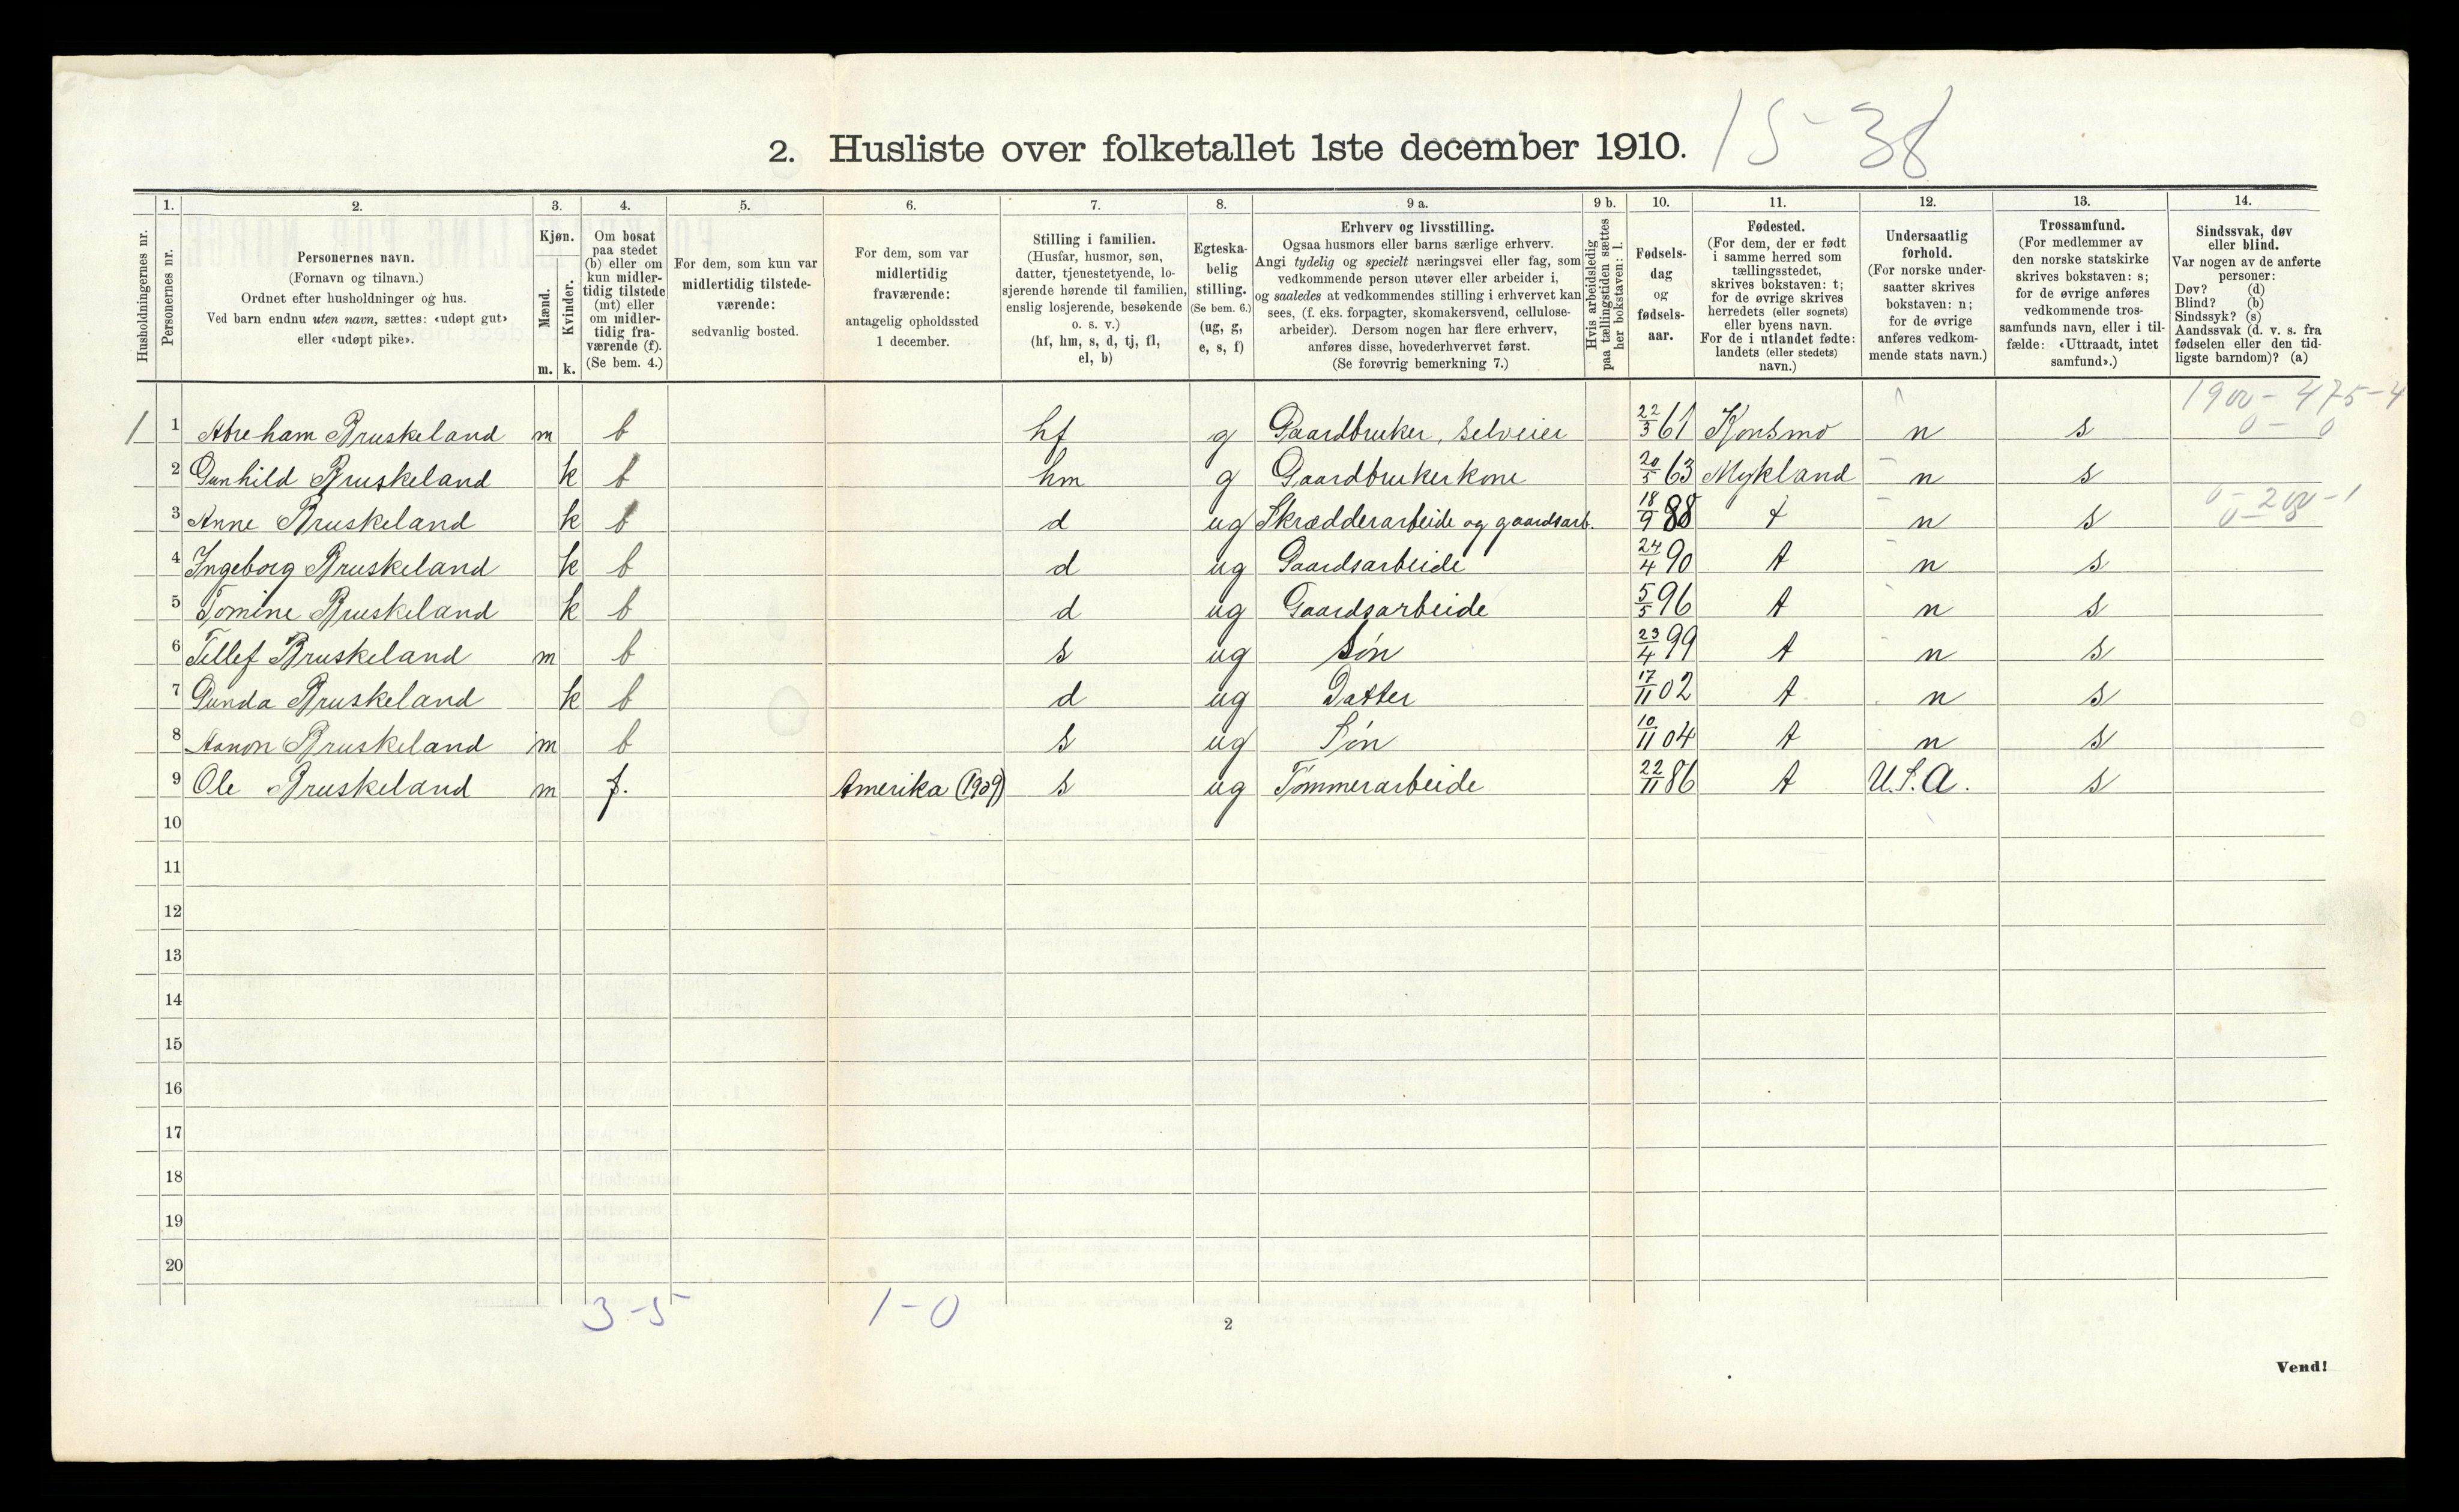 2. Husliste over folketallet 1ste december 1910. 15-38
1. 2. 3. 4. 5. 6. 7. 8. 9 a. 9 b. 10. 11. 12. 13. 14.
Husholdningernes nr.
Personernes nr.
Personernes navn.
(Fornavn og tilnavn.)
Ordnet efter husholdninger og hus.
Ved barn endnu uten navn, sættes: «udøpt gut»
eller «udøpt pike».
Kjøn.
Mænd.
Kvinder.
m. k.
Om bosat
paa stedet
(b) eller om
kun midler-
tidig tilstede
(mt) eller
om midler-
tidig fra-
værende (f).
(Se bem. 4.)
For dem, som kun var
midlertidig tilstede-
værende:
sedvanlig bosted.
For dem, som var
midlertidig
fraværende:
antagelig opholdssted
1 december.
Stilling i familien.
(Husfar, husmor, søn,
datter, tjenestetyende, lo-
sjerende hørende til familien,
enslig losjerende, besøkende
o. s. v.)
(hf, hm, s, d, tj, fl,
el, b)
Egteska-
belig
stilling.
(Se bem. 6.)
(ug, g,
e, s, f)
Erhverv og livsstilling.
Ogsaa husmors eller barns særlige erhverv.
Angi tydelig og specielt næringsvei eller fag, som
vedkommende person utøver eller arbeider i,
og saaledes at vedkommendes stilling i erhvervet kan
sees, (f. eks. forpagter, skomakersvend, cellulose-
arbeider). Dersom nogen har flere erhverv,
anføres disse, hovederhvervet først.
(Se forøvrig bemerkning 7.)
Hvis arbeidsledig
paa tællingstiden sættes
her bokstaven: l.
Fødsels-
dag
og
fødsels-
aar.
Fødested.
(For dem, der er født
i samme herred som
tællingsstedet,
skrives bokstaven: t;
for de øvrige skrives
herredets (eller sognets)
eller byens navn.
For de i utlandet fødte:
landets (eller stedets)
navn.)
Undersaatlig
forhold.
(For norske under-
saatter skrives
bokstaven: n;
for de øvrige
anføres vedkom-
mende stats navn.)
Trossamfund.
(For medlemmer av
den norske statskirke
skrives bokstaven: s;
for de øvrige anføres
vedkommende tros-
samfunds navn, eller i til-
fælde: «Uttraadt, intet
samfund».)
Sindssvak, døv
eller blind.
Var nogen av de anførte
personer:
Døv? (d)
Blind? (b)
Sindssyk? (s)
Aandssvak (d. v. s. fra
fødselen eller den tid-
ligste barndom)? (a)
1900 - 475-4
0 - 0
1 1 Abreham Bruskeland m b hf g Gaardbruker, selveier 22/3 61 Konsmo n s
2 Gunhild Bruskeland k b hm g Gaardbrukerkone 20/5 63 Mykland n s
0 - 200 - 1
3 Anne Bruskeland k b d ug Skrædderarbeide og gaardsarb. 18/9 88 t n s
4 Ingeborg Bruskeland k b d ug Gaardsarbeide 24/4 90 t n s
5 Tomine Bruskeland k b d ug Gaardsarbeide 5/5 96 t n s
6 Tellef Bruskeland m b s ug Søn 23/4 99 t n s
7 Gunda Bruskeland k b d ug Datter 17/11 02 t n s
8 Aanon Bruskeland m b s ug Søn 10/11 04 t n s
9 Ole Bruskeland m f. Amerika (1909) s ug Tømmerarbeide 22/11 86 t U.S.A. s
10
11
12
13
14
15
16
17
18
19
20
3-5 1-0
2
Vend!